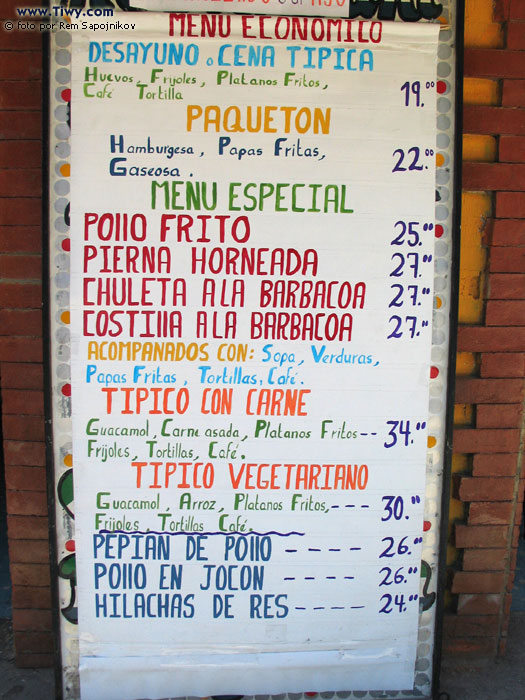 www.Tiwy.com
© foto por Rem Sapojnikov
MENU ECONOMICO
DESAYUNO o CENA TIPICA
Huevos, Frijoles, Platanos Fritos,
Café Tortilla 19.00
PAQUETON
Hamburgesa, Papas Fritas,
Gaseosa. 22.00
MENU ESPECIAL
POllO FRITO 25.00
PIERNA HORNEADA 27.00
CHULETA A LA BARBACOA 27.00
COSTIllA A LA BARBACOA 27.00
ACOMPANADOS CON: Sopa, Verduras,
Papas Fritas, Tortillas, Café.
TIPICO CON CARNE
Guacamol, Carne asada, Platanos Fritos-- 34.00
Frijoles, Tortillas, Café.
TIPICO VEGETARIANO
Guacamol, Arroz, Platanos Fritos,--- 30.00
Frijoles, Tortillas Café.
PEPIAN DE POllO ---- 26.00
POllO EN JOCON ---- 26.00
HILACHAS DE RES---- 24.00